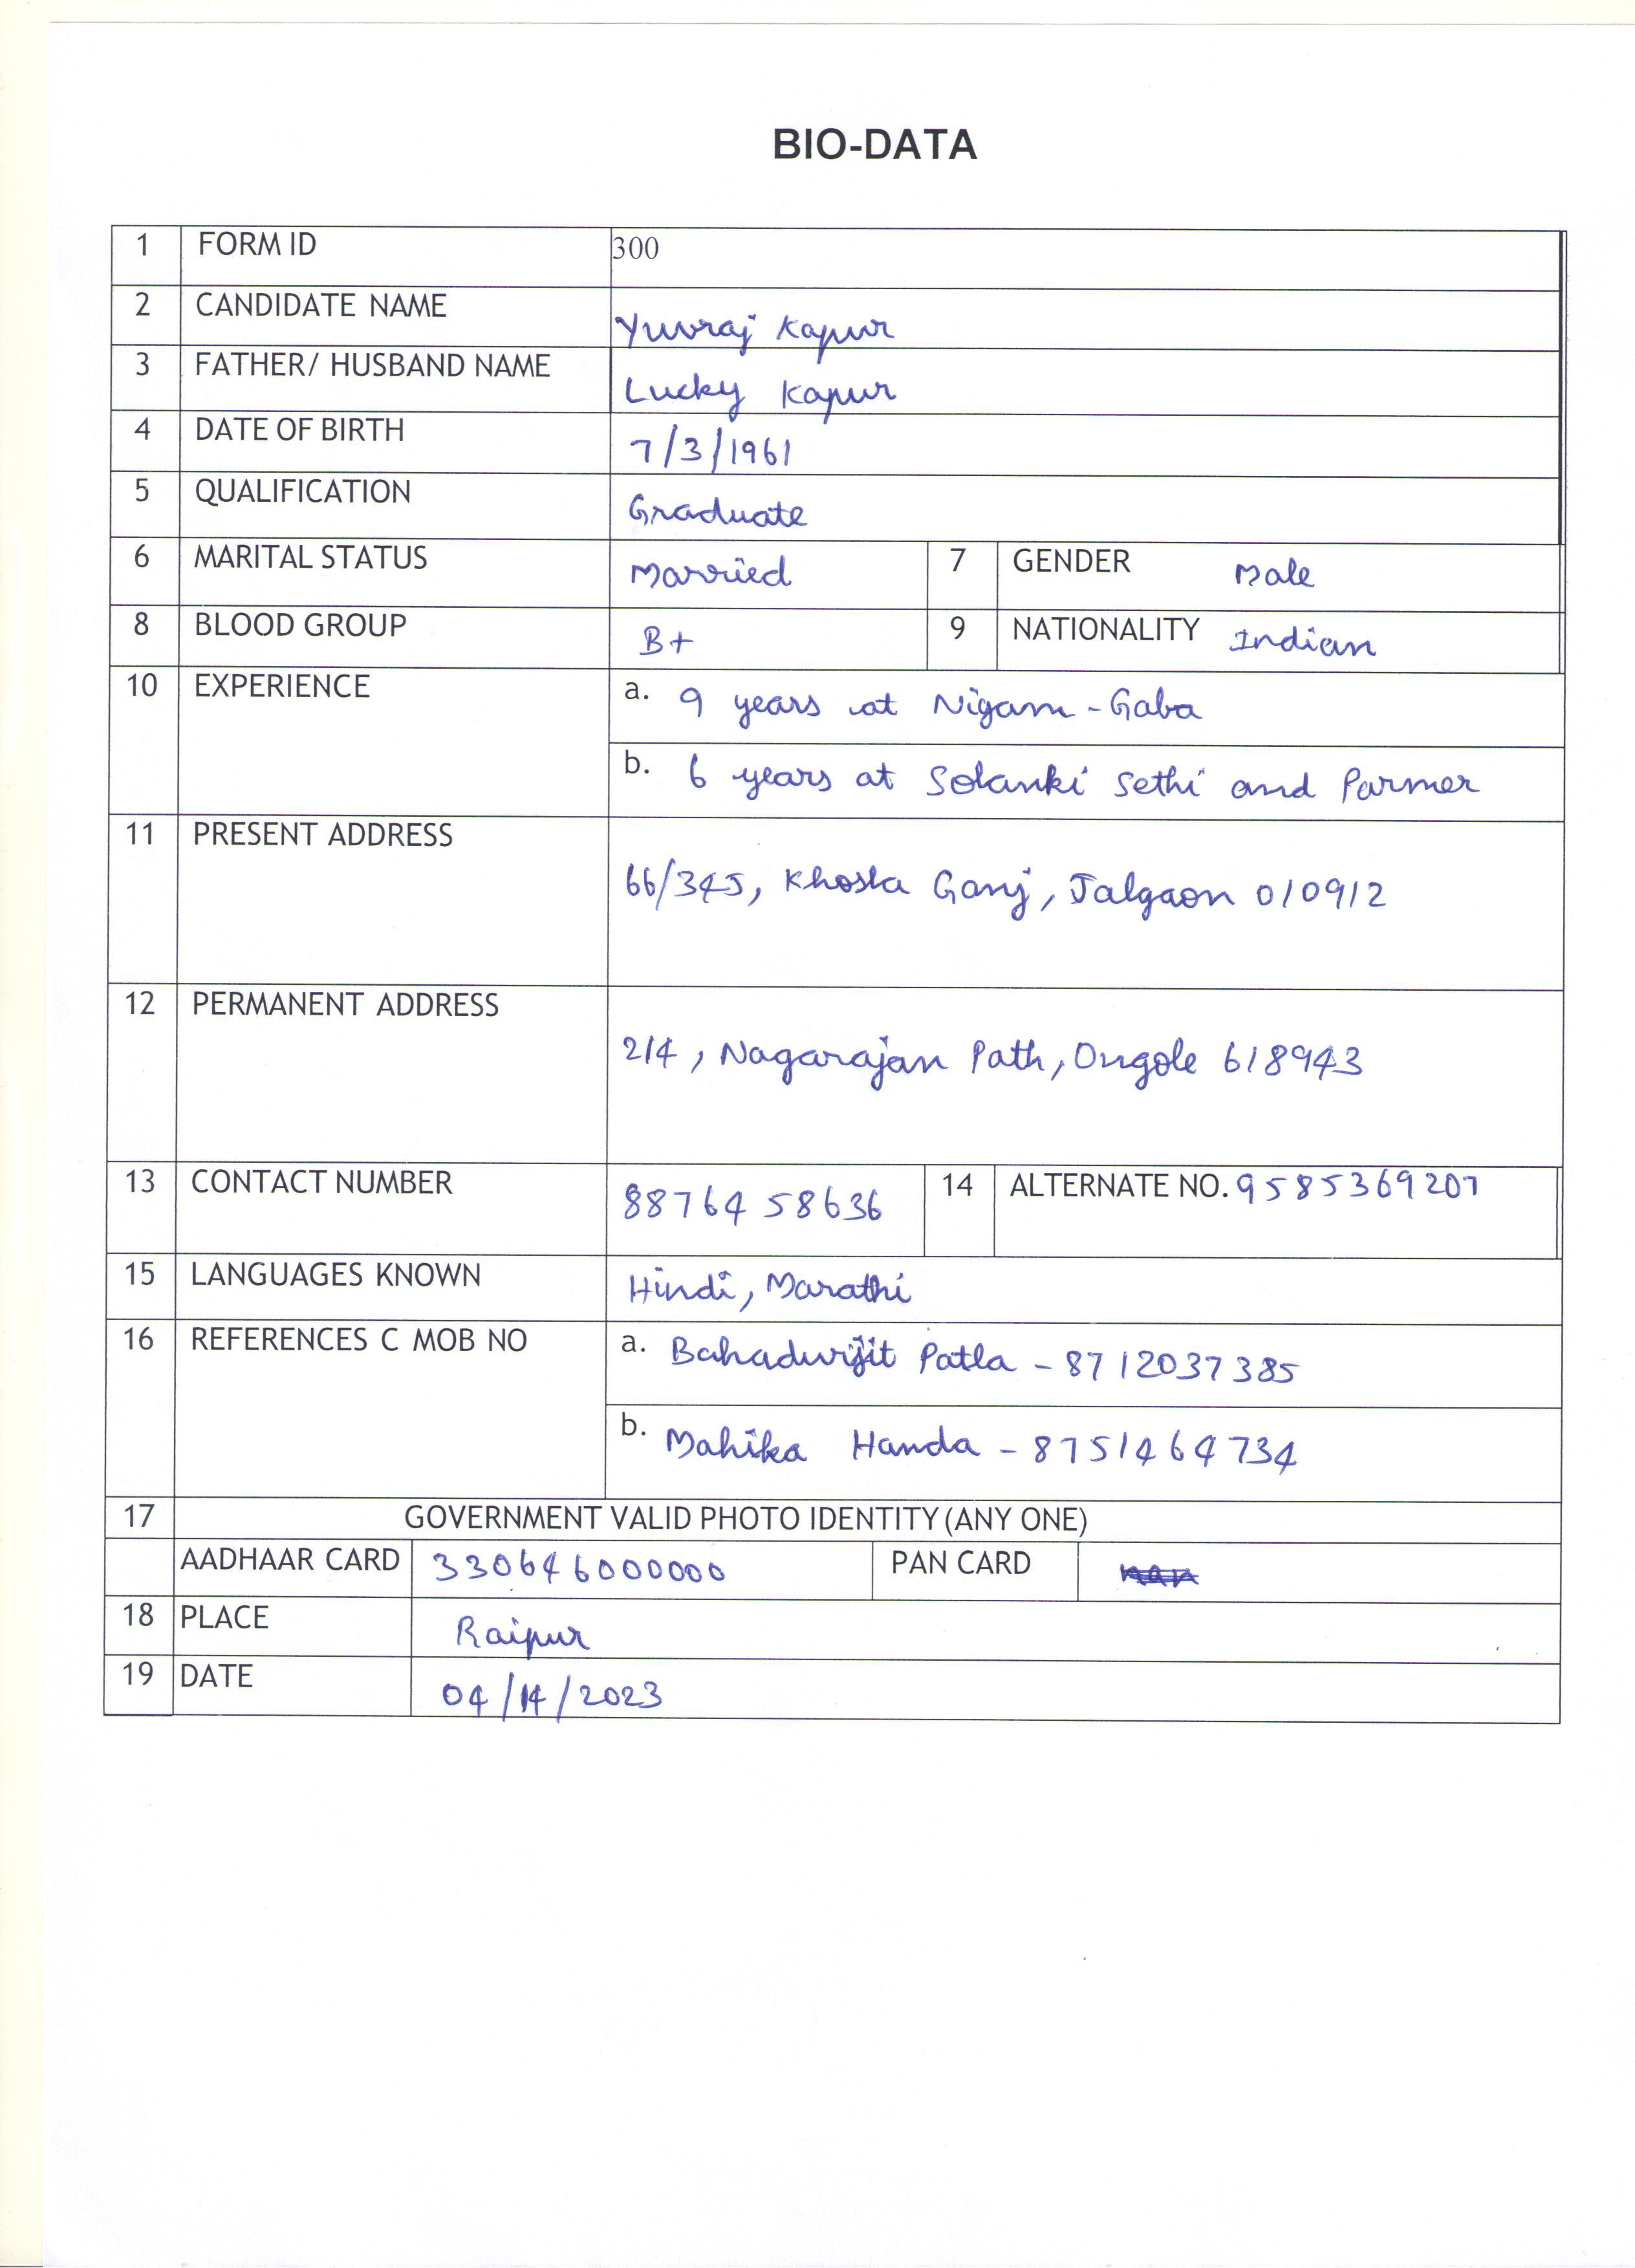 BIO-DATA
1 FORM ID 300
2 CANDIDATE NAME Yuvraj Kapur
3 FATHER/ HUSBAND NAME Lucky Kapur
4 DATE OF BIRTH 7/3/1961
5 QUALIFICATION Graduate
6 MARITAL STATUS Married 7 GENDER Male
8 BLOOD GROUP B+ 9 NATIONALITY Indian
10 EXPERIENCE a. 9 years at Nigam-Gaba
b. 6 years at Solanki Sethi and Parmer
11 PRESENT ADDRESS
66/345, Khosla Ganj, Jalgaon 010912
12 PERMANENT ADDRESS
214, Nagarajan Path, Ongole 618943
13 CONTACT NUMBER 8876458636 14 ALTERNATE NO. 9585369207
15 LANGUAGES KNOWN Hindi, Marathi
16 REFERENCES C MOB NO a. Bahadurjit Patla - 8712037385
b. Mahika Handa - 8751464734
17 GOVERNMENT VALID PHOTO IDENTITY (ANY ONE)
AADHAAR CARD 330646000000 PAN CARD
18 PLACE Raipur
19 DATE 04/14/2023